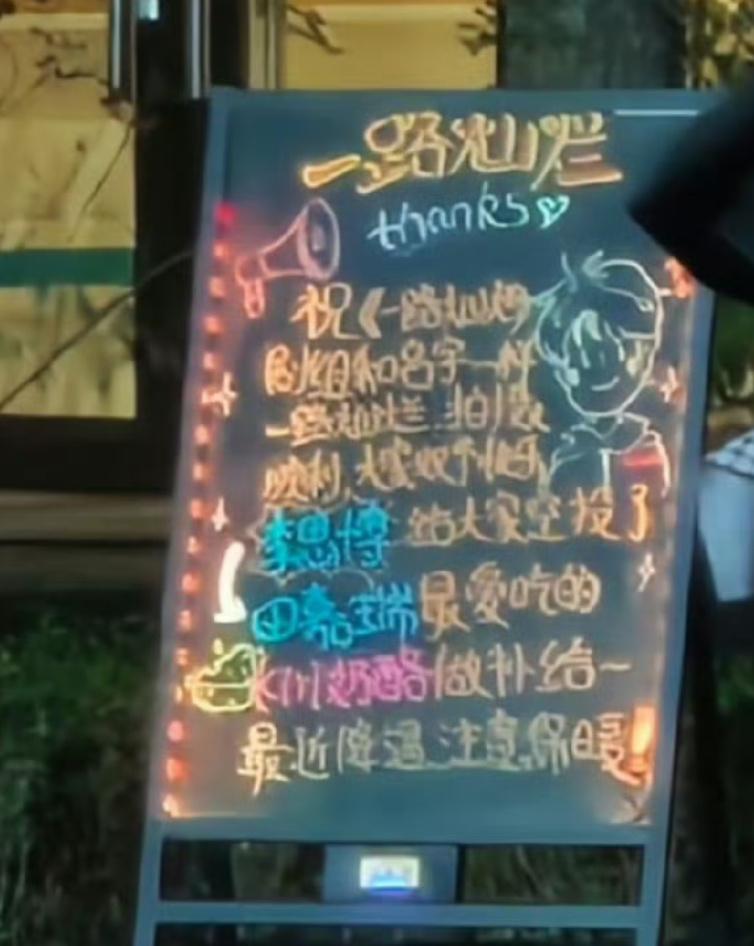 一路灿烂
thanks
祝《一路灿烂
剧组和名字一样
一路灿烂 拍摄
顺利,大家收予
李思博 给大家空投了
田嘉瑞最爱吃的
奶酪做补给~
最近降温 注意保暖